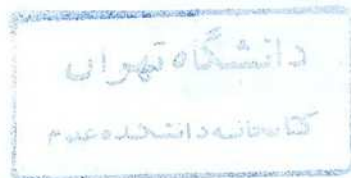 دانشگاه تهران
کتابخانه دانشکده علوم